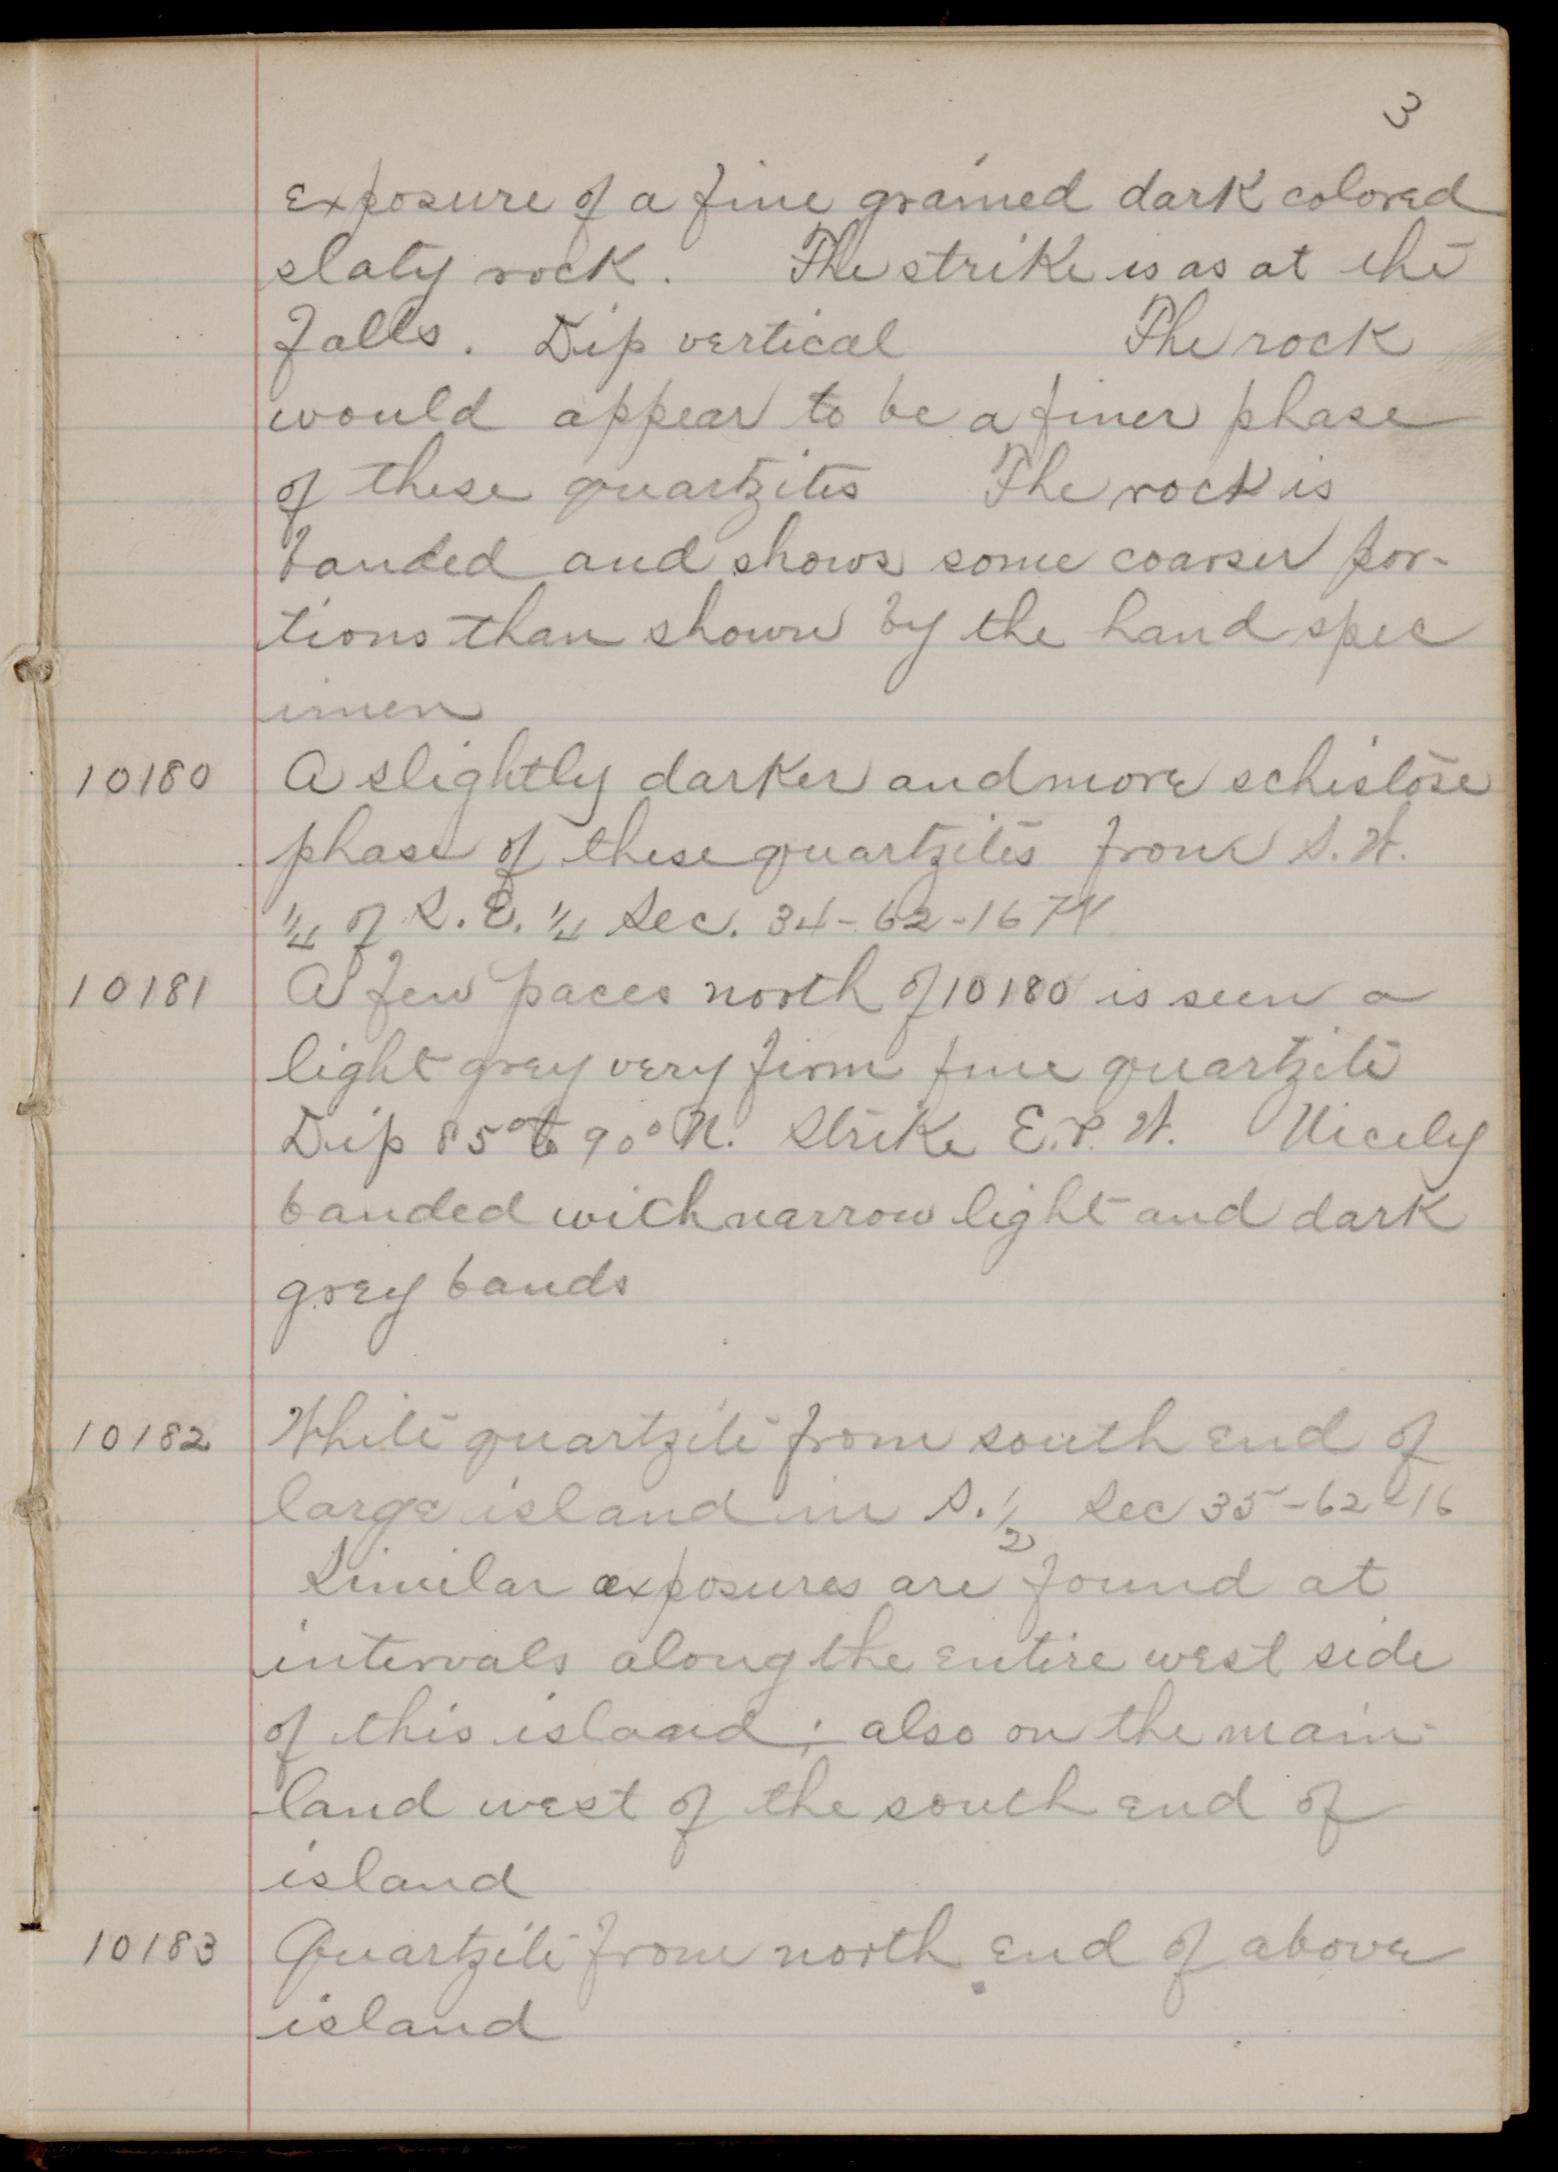 3
exposure of a fine grained dark colored
slaty rock. The strike is as at the
falls. Dip vertical The rock
would appear to be a finer phase
of these quartzites The rock is
banded and shows some coarser por-
tions than shown by the hand spec
imen
10180 A slightly darker and more schistose
phase of these quartzites from S.W.
1/4 of S.E. 1/4 Sec. 34-62-16 W
10181 A few paces north of 10180 is seen a
light grey very firm fine quartzite
Dip 85° to 90° N. Strike E. & W. Nicely
banded with narrow light and dark
grey bands
10182 White quartzite from south end of
large island in S. 1/2 Sec 35-62-16
Similar exposures are found at
intervals along the entire west side
of this island; also on the main-
land west of the south end of
island
10183 Quartzite from north end of above
island